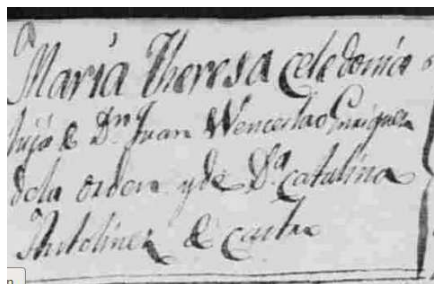 Maria Theresa Celedonia
hija de Dn. Juan Wenceslao Enriquez
de la orden y de Da. Catalina
Antolinez de Castro